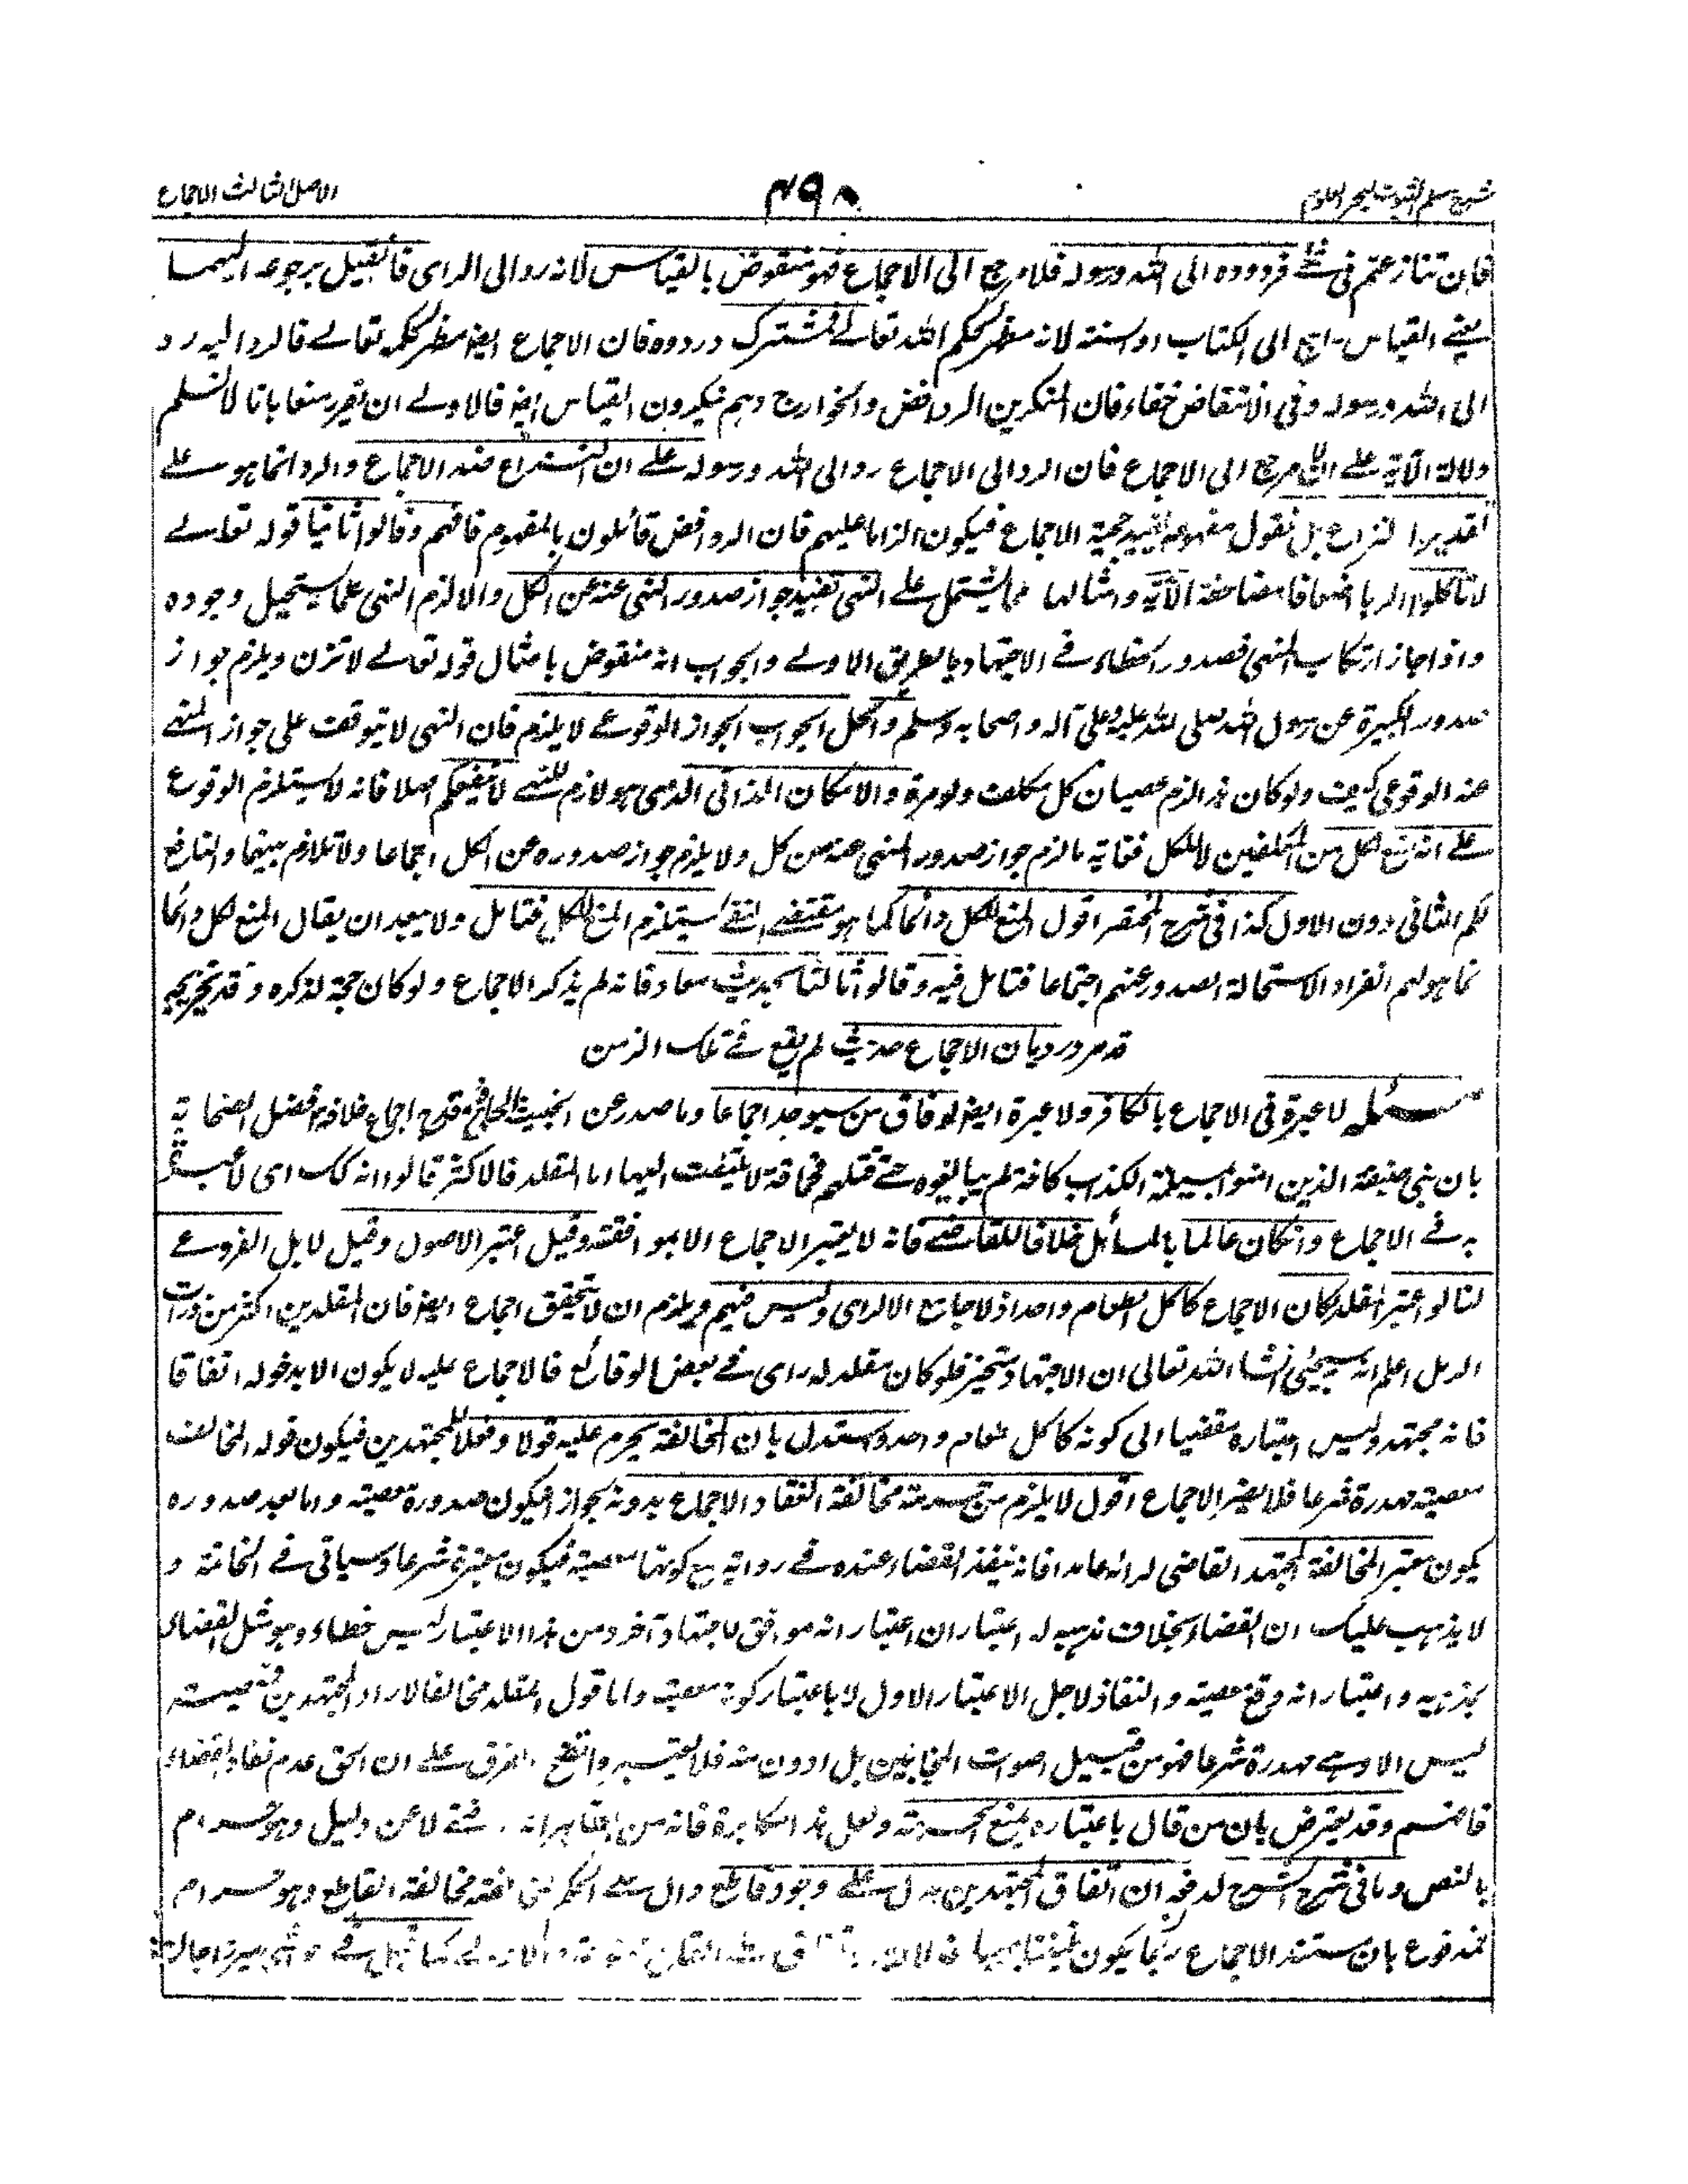 شرح مسلم الثبوت لبحر العلوم
۴۹۸
الاصل الثالث الاجماع
فان تنازعتم فى شئ فردوده الى الله ورسوله فلا مرجع الى الاجماع فهو منقوض بالقياس لانه رد الى الراى فان قيل برجوعه اليهما
يعنى القياس راجع الى الكتاب او السنة لانه مظهر لحكم الله تعالى فمشترك وروده فان الاجماع ايضا مظهر لحكمه تعالى فالرد اليه رد
الى الله ورسوله وفى الانتقاض خفاء فان المنكرين الروافض والخوارج وهم ينكرون القياس ايضا فالاولى ان يقرر منعا بانا لا نسلم
دلالة الآية على ان لا مرجع الى الاجماع فان الرد الى الاجماع رد الى الله ورسوله على ان النزاع ضد الاجماع والرد انما هو على
تقدير النزاع بل نقول مفهومه يفيد حجية الاجماع فيكون الزاما عليهم فان الروافض قائلون بالمفهوم فافهم وقالوا ثانيا قوله تعالى
لا تأكلوا الربا اضعافا مضاعفة الآية وامثالها مما يشتمل على النهى تفيد جواز صدور المنهى عنه عن الكل والا لزم النهى عما يستحيل وجوده
واذا جاز ارتكاب المنهى فصدور الخطاء فى الاجتهاد بالطريق الاولى والجواب انه منقوض بامثال قوله تعالى لا تزن ويلزم جواز
صدور الكبيرة عن رسول الله صلى الله عليه وعلى آله واصحابه وسلم والحل الجواب الجواز الوقوعى لا يلزم فان النهى لا يتوقف على جواز المنهى
عنه الوقوعى كيف ولو كان لزم عصيان كل مكلف ولو مرة والامكان الذاتى الذى هو لازم للنهى لا ينفعكم اصلا فانه لا يستلزم الوقوع
على انه منع لكل من المكلفين لا للكل فغاية ما لزم جواز صدور المنهى عنه من كل ولا يلزم جواز صدوره عن الكل اجماعا ولا تلازم بينهما والنافع
لكم الثانى دون الاول كذا فى شرح المختصر اقول المنع لكل دائما كما هو مقتضى النهى يستلزم المنع للكل فتامل ولا يبعد ان يقال المنع لكل دائما
انما هو لهم انفرادا لاستحالة الصدور عنهم اجتماعا فتامل فيه وقالوا ثالثا بحديث معاذ فانه لم يذكر الاجماع ولو كان حجة لذكره وقد تخريجه
قد مر وردبان الاجماع حديث لم يقع فى تلك الزمن
مسئله لا عبرة فى الاجماع بالكافر ولا عبرة ايضا لوفاق من سيوجد اجماعا وما صدر عن الخبيث قدح اجماع خلافة افضل الصحابة
بان بنى حنيفة الذين امنوا بمسيلمة الكذاب كافة لم يبايعوه حتى قتلهم فحماقة لا يلتفت اليها اما المقلد فالاكثر قالوا انه كك اى لا عبرة
به فى الاجماع وان كان عالما بالمسائل خلافا للقاضى فانه لا يعتبر الاجماع الا بموافقته وقيل اعتبر الاصولى وقيل لا بل الفروعى
لنا لو اعتبر المقلد لكان الاجماع كاكل طعام واحد اذ لا جامع الا الراى وليس فيهم ويلزم ان لا يتحقق اجماع ايضا فان المقلدين اكثر من ذرات
الرمل اعلم انه سيجئ انشاء الله تعالى ان الاجتهاد يتجزى فلو كان مقلد له راى فى بعض الوقائع فالاجماع عليه لا يكون الا بدخوله اتفاقا
فانه مجتهد وليس اعتباره مفضيا الى كونه كاكل طعام واحد واستدل بان المخالفة يحرم عليه قولا وفعلا للمجتهدين فيكون قوله المخالف
معصية مهدرة شرعا فلا يضر الاجماع اقول لا يلزم من حرمة مخالفة انعقاد الاجماع بدونه لجواز ان يكون صدوره معصية واما بعد صدوره
يكون معتبرا لمخالفة المجتهد القاضى لرائه عامدا فانه ينفذ القضاء عنده فى رواية مع كونها معصية فيكون معتبرة شرعا وسياتى فى الخاتمة و
لا يذهب عليك ان القضاء بخلاف مذهبه له اعتباران اعتبار انه موافق لاجتهاد آخر ومن هذا الاعتبار ليس خطاء وهو مثل القضاء
بمذهبه واعتبار انه وقع معصية والنفاذ لاجل الاعتبار الاول لا باعتبار كونه معصية واما قول المقلد مخالفا لآراء المجتهدين فمعصية
ليس الا وهى مهدرة شرعا فهو من قبيل اصوات المجانين بل ادون منه فلا يعتبر به واتضح الفرق على ان الحق عدم نفاذ القضاء
فافهم وقد يعترض بان من قال باعتباره يمنع الحرمة ولعل هذا مكابرة فانه من الظاهر انه لا عن دليل وهو حرام
بالنص وما فى شرح الشرح لدفعه ان اتفاق المجتهدين يدل على وجود قاطع دال على الحكم مخالفة القاطع وهو حرام
فمدفوع بان مستند الاجماع ربما يكون ظنيا